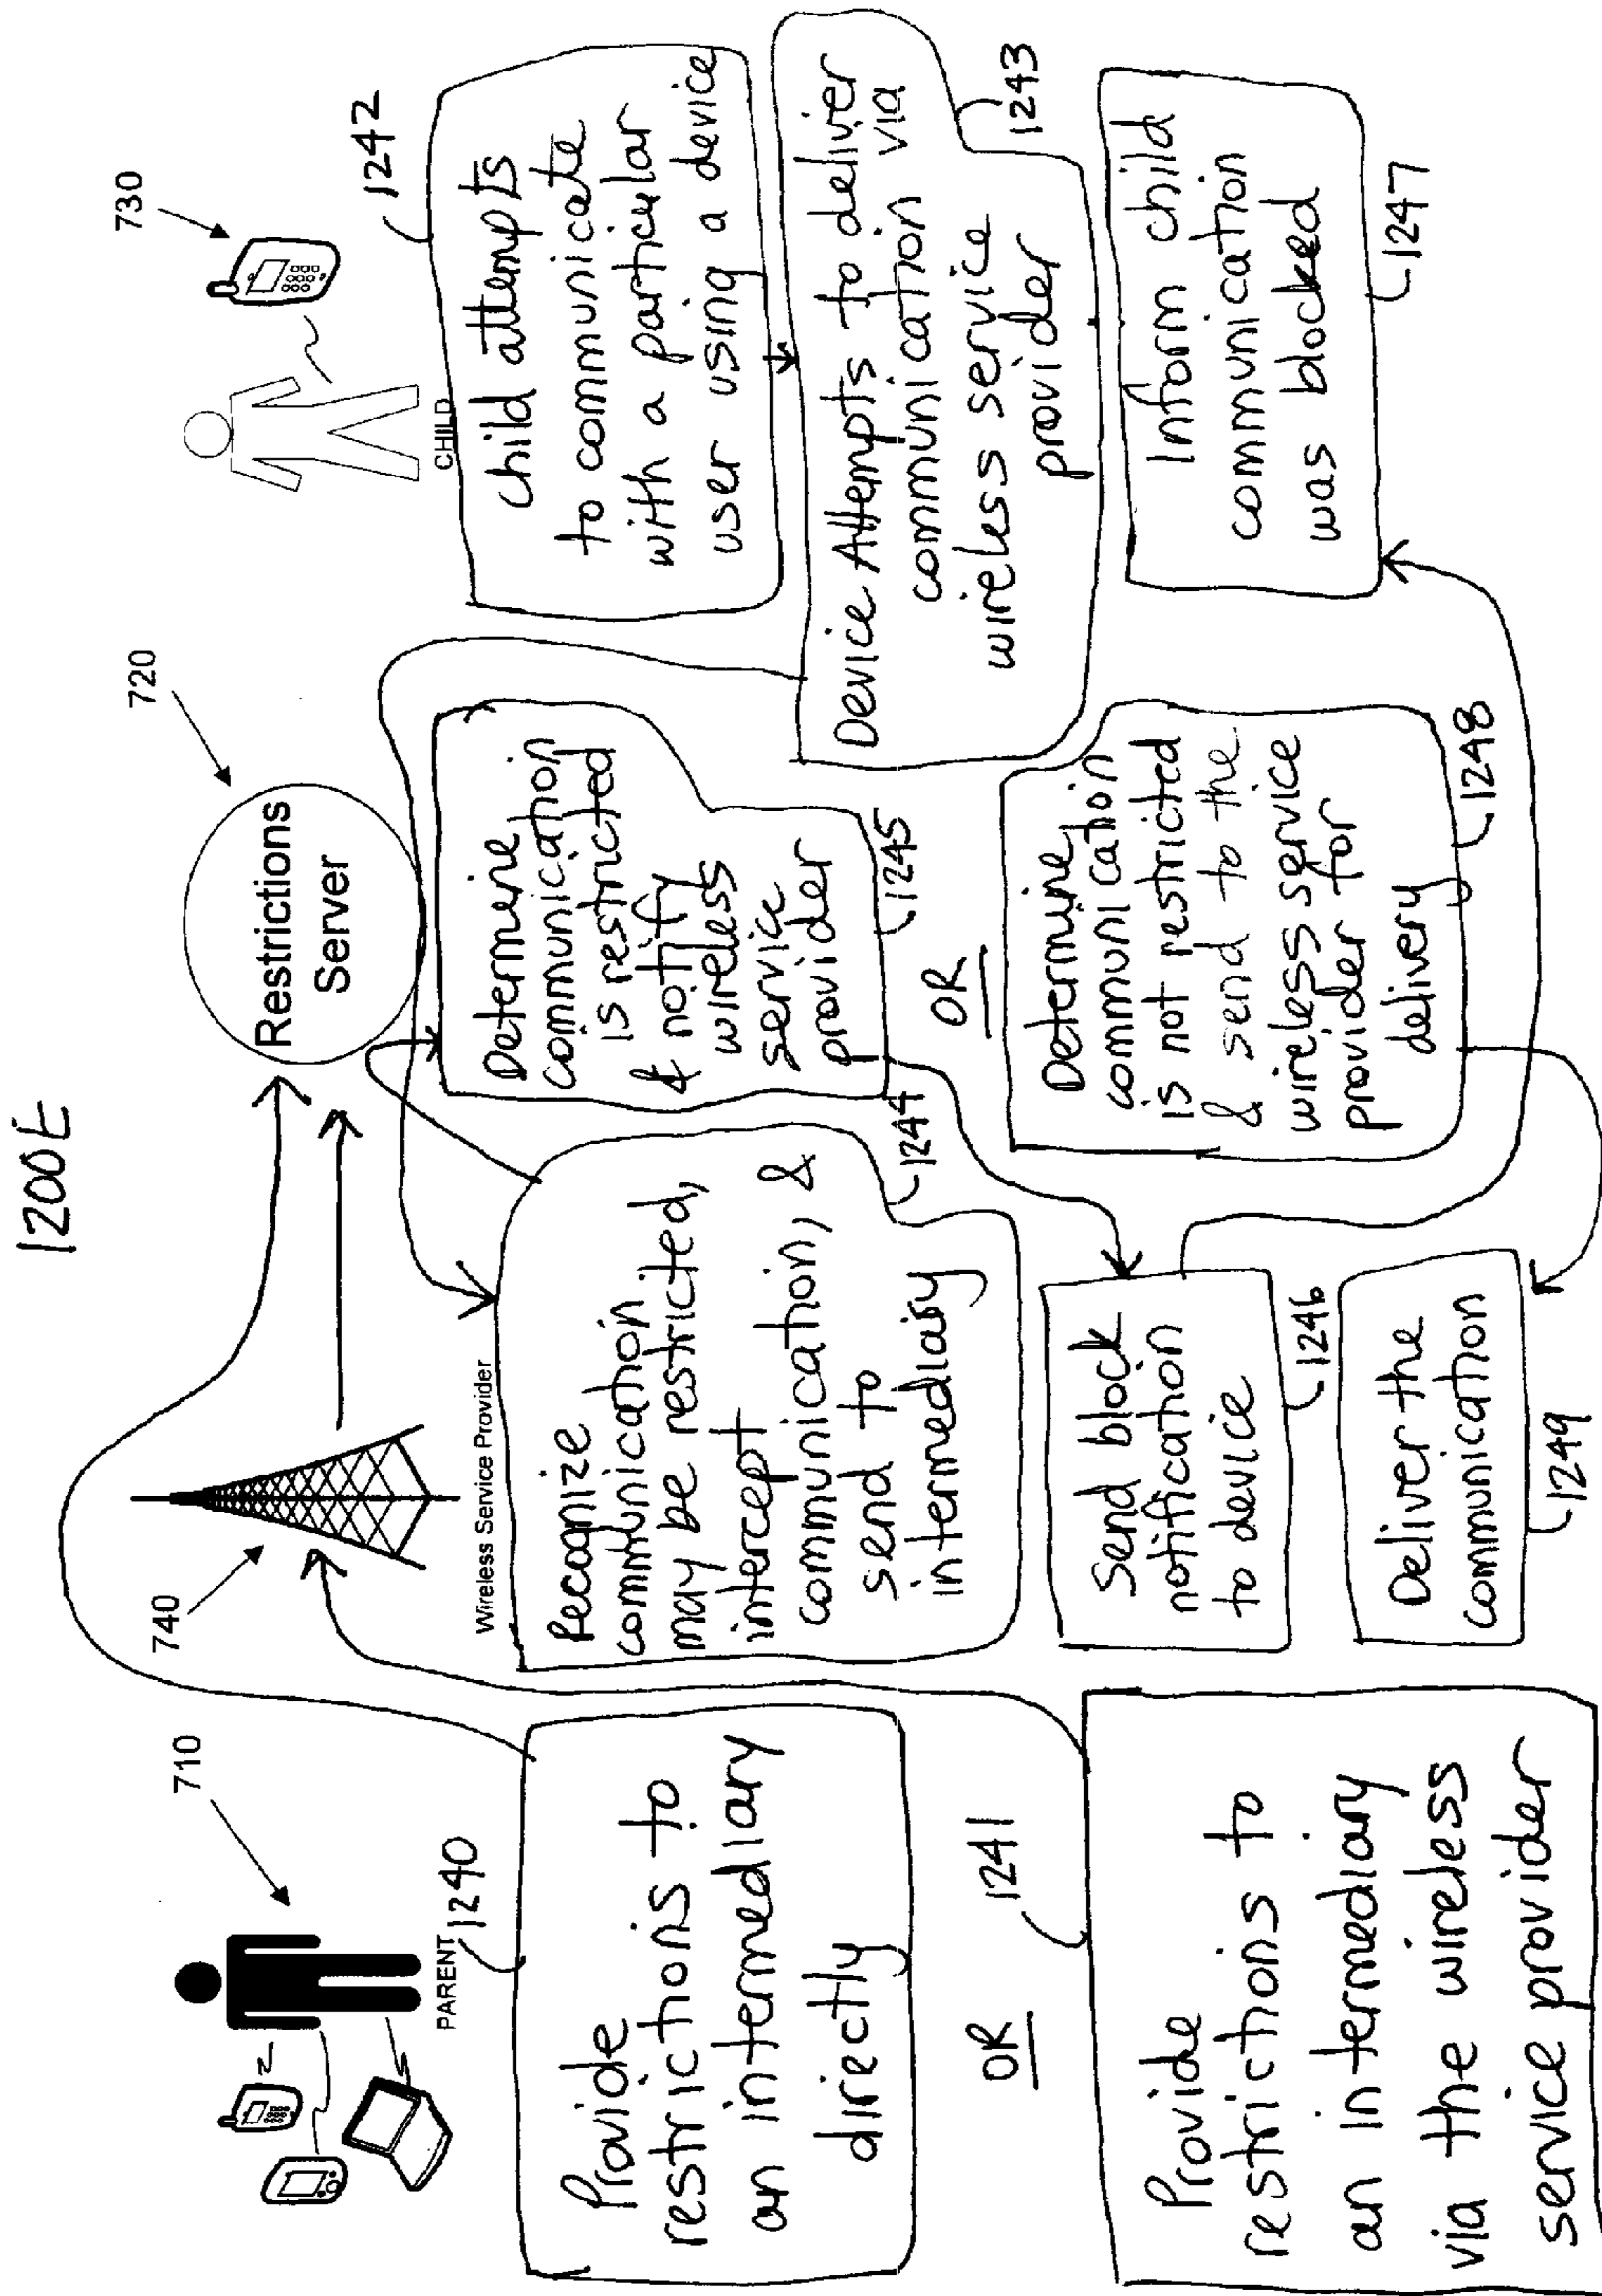 1200E
710
PARENT
1240
Provide
restrictions to
an intermediary
directly
OR
1241
Provide
restrictions to
an intermediary
via the wireless
service provider
740
Wireless Service Provider
Recognize
communication
may be restricted,
intercept
communication, &
send to
intermediary
1244
Send block
notification
to device
1246
Deliver the
communication
1249
720
Restrictions
Server
Determine
communication
is restricted
& notify
wireless
service
provider
1245
OR
Determine
communication
is not restricted
& send to the
wireless service
provider for
delivery
1248
730
CHILD
1242
child attempts
to communicate
with a particular
user using a device
Device Attempts to deliver
communication via
wireless service
provider
1243
Inform child
communication
was blocked
1247